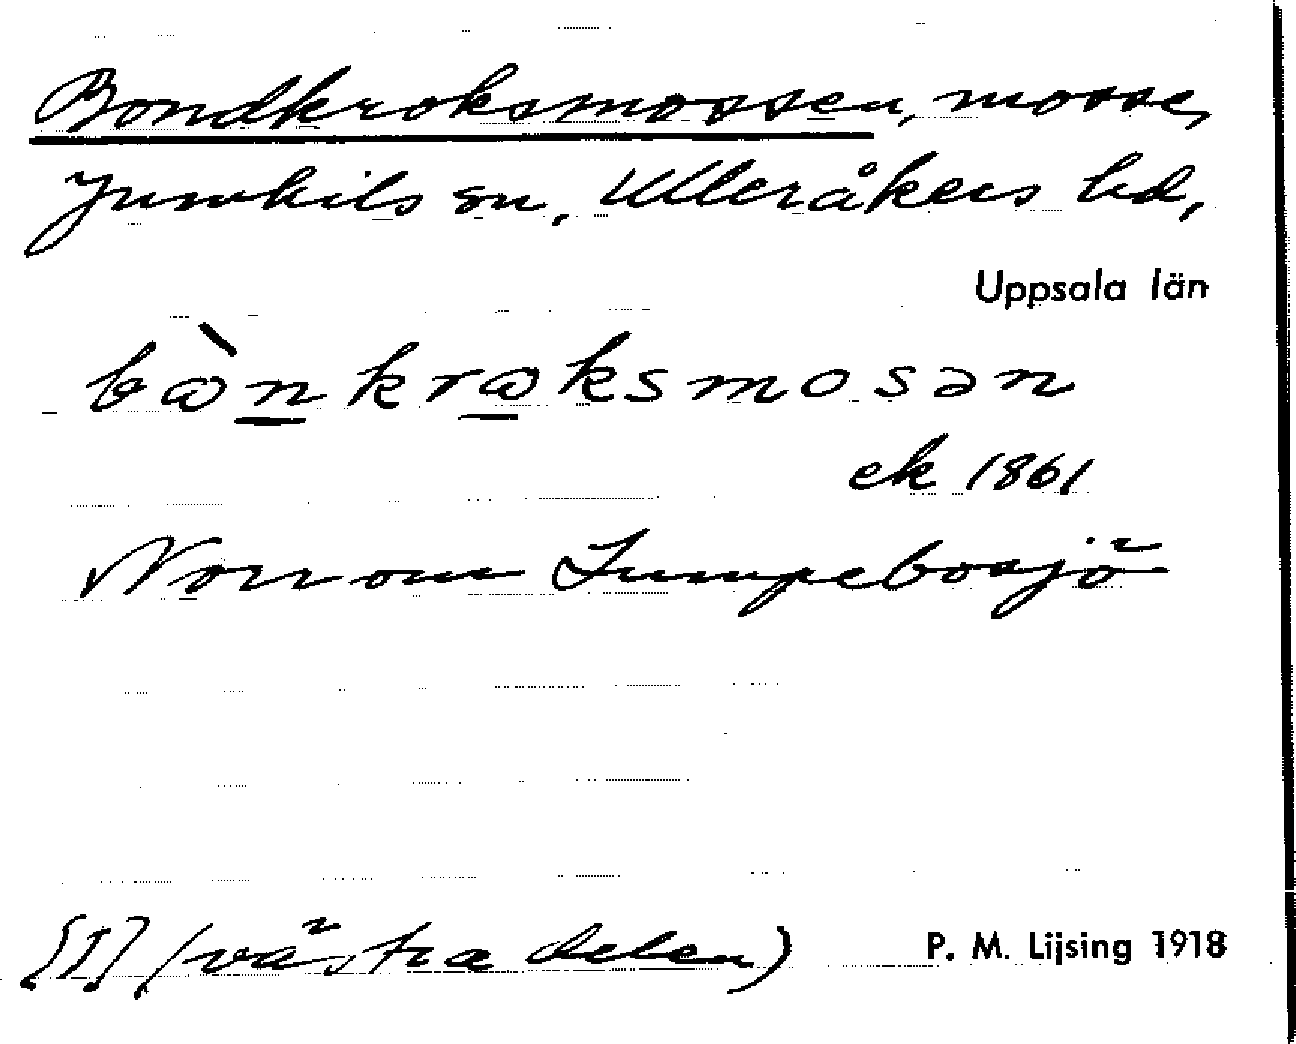 Bondkroksmossen, mosse,
Jumkils sn, Ulleråkers hd,
Uppsala län
bὼnkrωksmosən
ek 1861
Norr om Lumpebosjö
[I] (västra delen)
P. M. Lijsing 1918